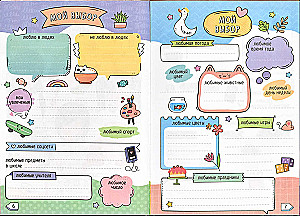 МОЙ ВЫБОР
люблю в людях
не люблю в людях
мои
увлечения
любимый спорт
любимые соцсети
любимые предметы
в школе
любимые учителя
любимое
число
6
МОЙ
ВЫБОР
любимая погода
любимое
время года
любимый
цвет
любимые животные
любимый
день недели
любимые цветы
любимые игры
любимые праздники
7